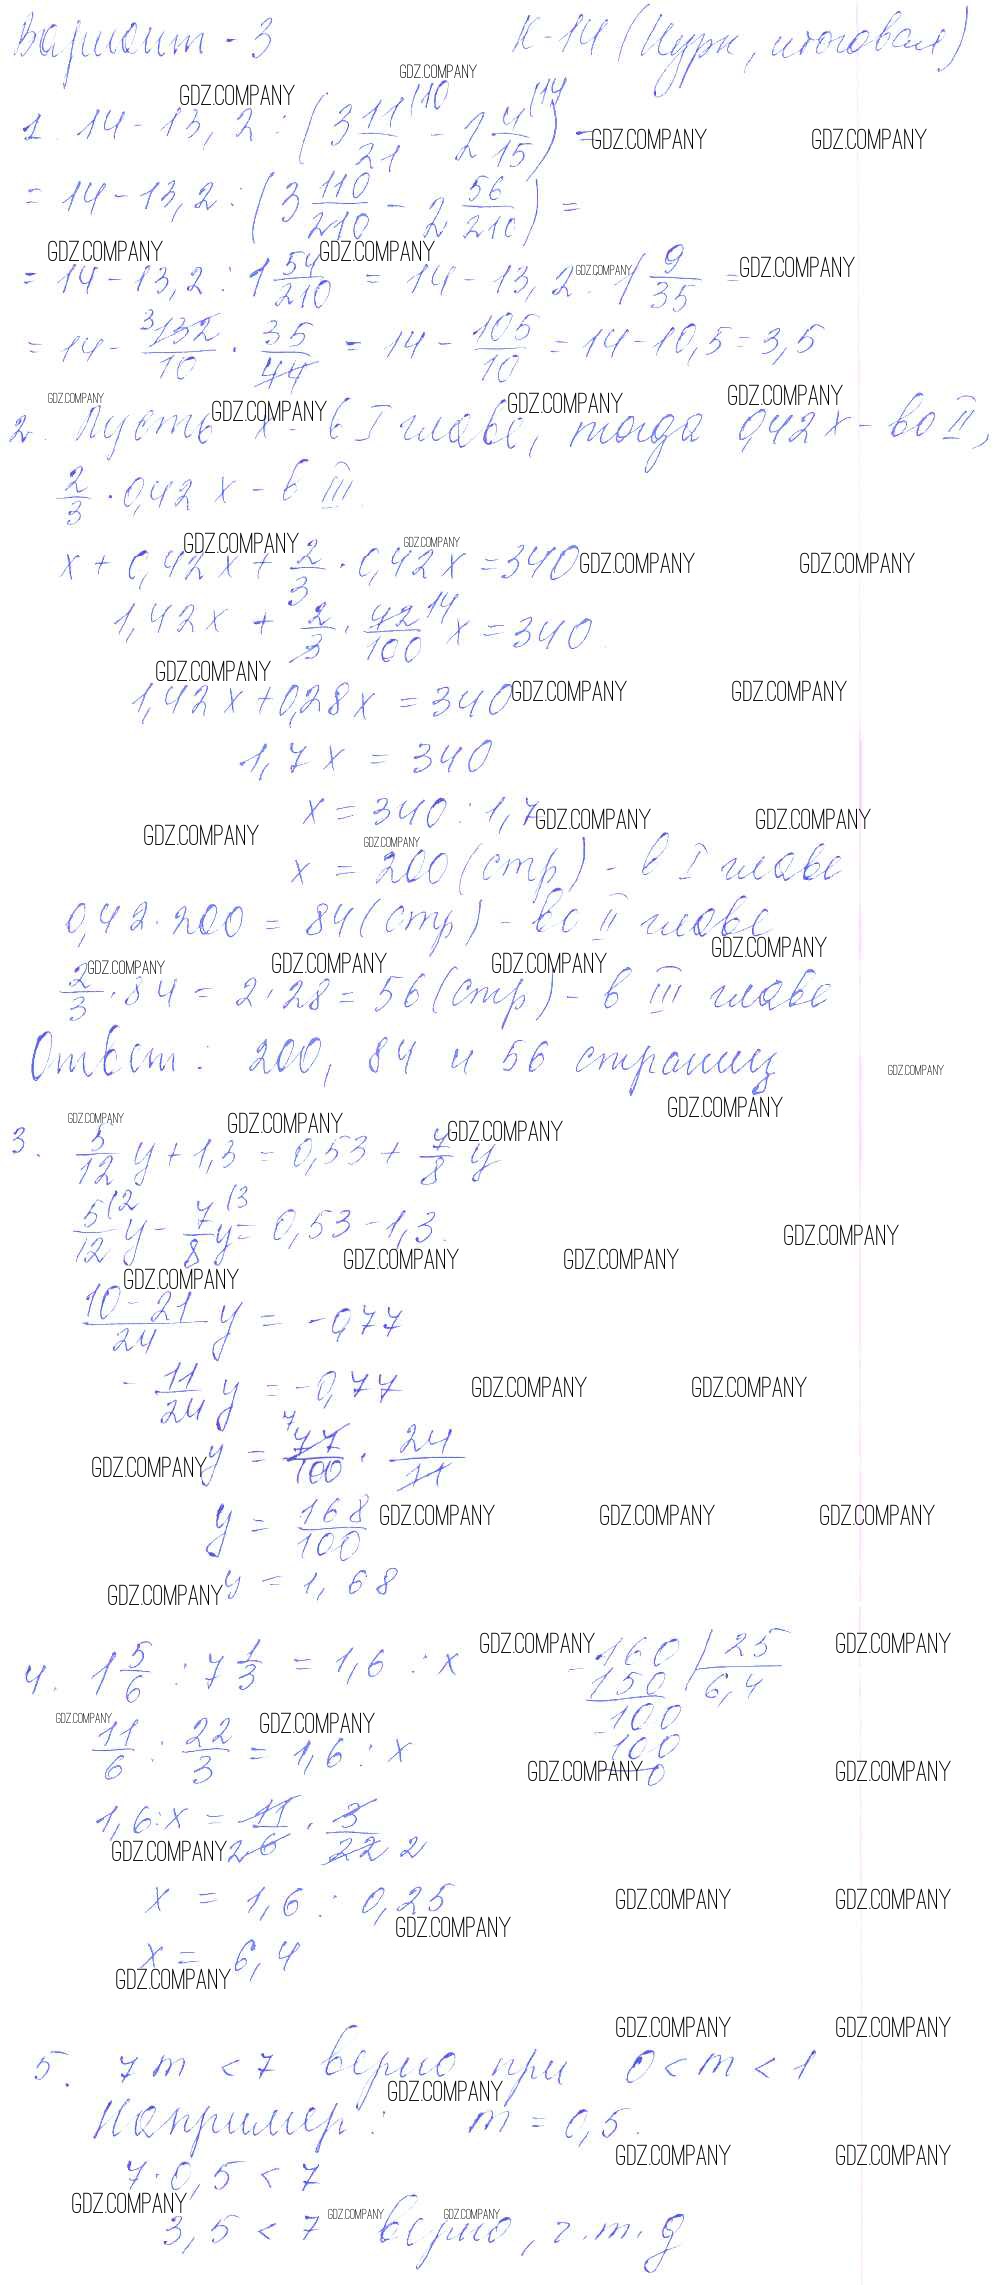 Вариант - 3 К-14 (Нурк, итоговая)
1. 14 - 13,2 : (3 11/21 (10 - 2 4/15 (14) =
= 14 - 13,2 : (3 110/210 - 2 56/210) =
= 14 - 13,2 : 1 54/210 = 14 - 13,2 : 1 9/35 =
= 14 - 3 132/10 · 35/44 = 14 - 105/10 = 14 - 10,5 = 3,5
2. Пусть x - в I главе, тогда 0,42x - во II,
2/3 · 0,42 x - в III.
x + 0,42x + 2/3 · 0,42x = 340
1,42x + 2/3 · 42/100 14 x = 340.
1,42x + 0,28x = 340
1,7x = 340
x = 340 : 1,7
x = 200 (стр) - в I главе
0,42 · 200 = 84 (стр) - во II главе
2/3 · 84 = 2 · 28 = 56 (стр) - в III главе
Ответ: 200, 84 и 56 страниц
3. 5/12 y + 1,3 = 0,53 + 7/8 y
5/12 (2 y - 7/8 (3 y = 0,53 - 1,3.
10 - 21/24 y = -0,77
- 11/24 y = -0,77
y = 7 77/100 · 24/11
y = 168/100
y = 1,68
4. 1 5/6 : 7 1/3 = 1,6 : x
11/6 : 22/3 = 1,6 : x
1,6 : x = 11/2 6 · 3/22 2
x = 1,6 : 0,25
x = 6,4
- 160 | 25
150 6,4
- 100
100
0
5. 7m < 7 верно при 0 < m < 1
Например: m = 0,5.
7 · 0,5 < 7
3,5 < 7 верно, ч.т.д
GDZ.COMPANY